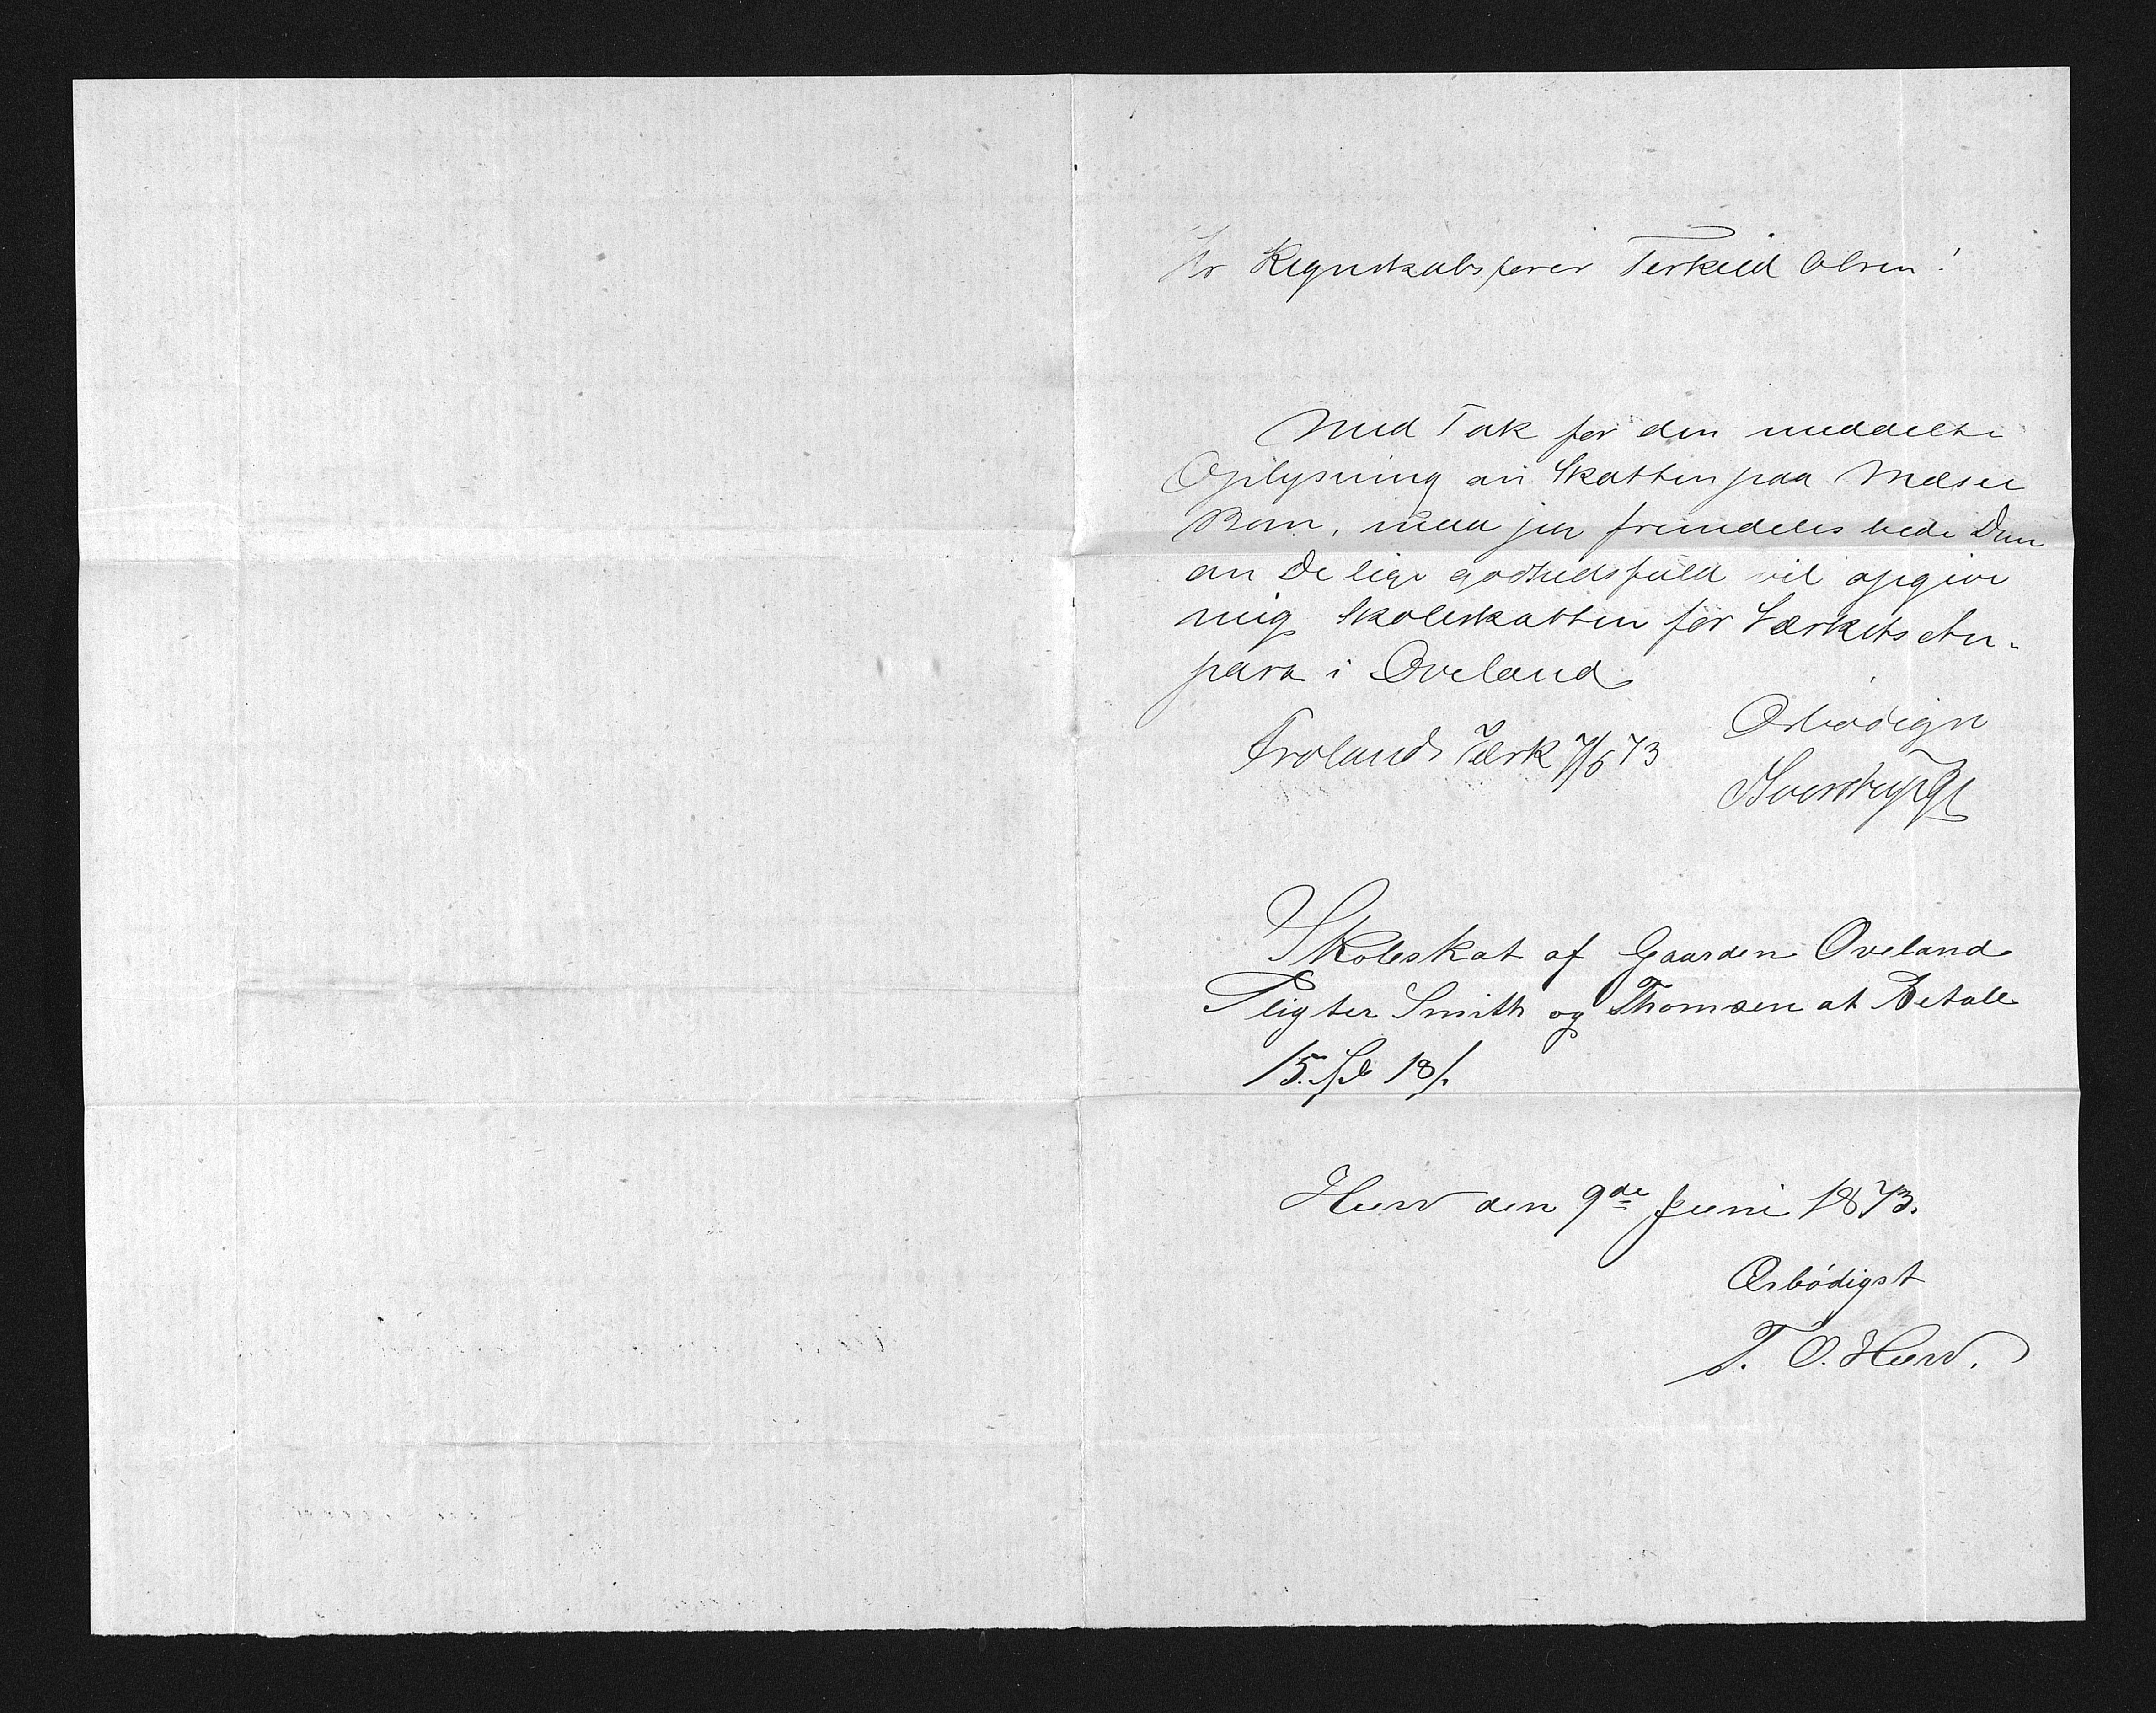 Hr Regnskabsfører Terkild Olsen!
Med Tak for den meddelte
Oplysning om Skatten paa Mæsel
Bom, maa jeg fremdeles bede Dem
om De lige godhedsfuld vil opgive
mig Skoleskatten for Værkets
part i Oveland
Frolands Værk 7/6 73
Ærbødigst
Skoleskat af Gaarden Oveland
Pligter Smith og Thomsen at Betale
15. ſd 18 ſ.
Hurv den 9de Juni 1873.
Ærbödigst
T. O. Hurv.